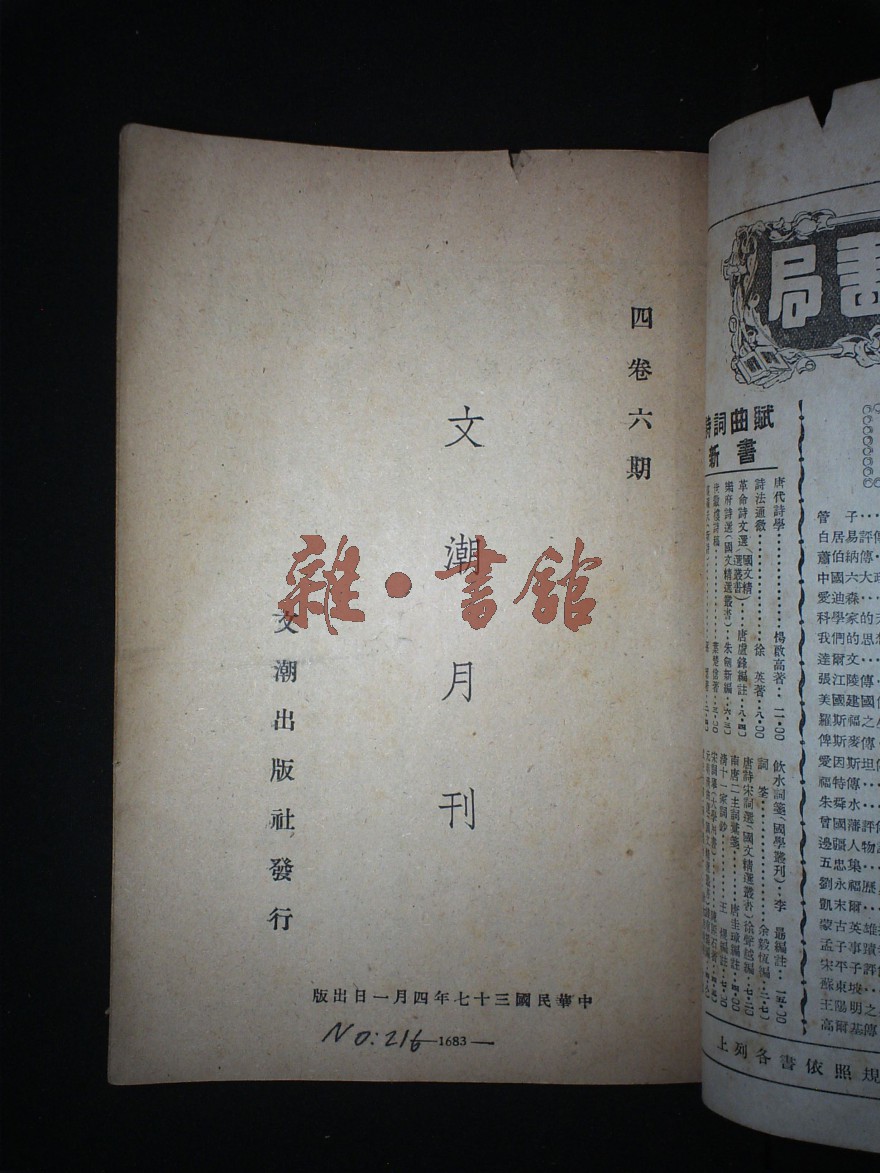 四卷六期
文潮月刊
文潮出版社發行
版出日一月四年七十三國民華中
NO:216
—1683—
雜·書館
書局
詩詞曲賦
新書
唐代詩學 楊啟高著 二·00
詩法通微 徐英著 八·00
革命詩文選(國文精選叢書) 唐盧鋒編註 八·四
朱劍新編
飲水詞箋(國學叢刊) 李勗編註 一五·00
詞筌 余毅恆編
唐詩宋詞選(國文精選叢書) 徐聲越編
南唐二主詞彙箋 唐圭璋編註
清十一家詞鈔 王煜編註
管子
白居易評傳
蕭伯納傳
中國六大政
愛迪森
科學家的
我們的思想
達爾文
張江陵傳
美國建國
羅斯福之
俾斯麥傳
愛因斯坦傳
福特傳
朱舜水
曾國藩評傳
邊疆人物
五忠集
劉永福歷
凱末爾
蒙古英雄
孟子事蹟
宋平子評傳
蘇東坡
王陽明之
高爾基傳
上列各書依照規